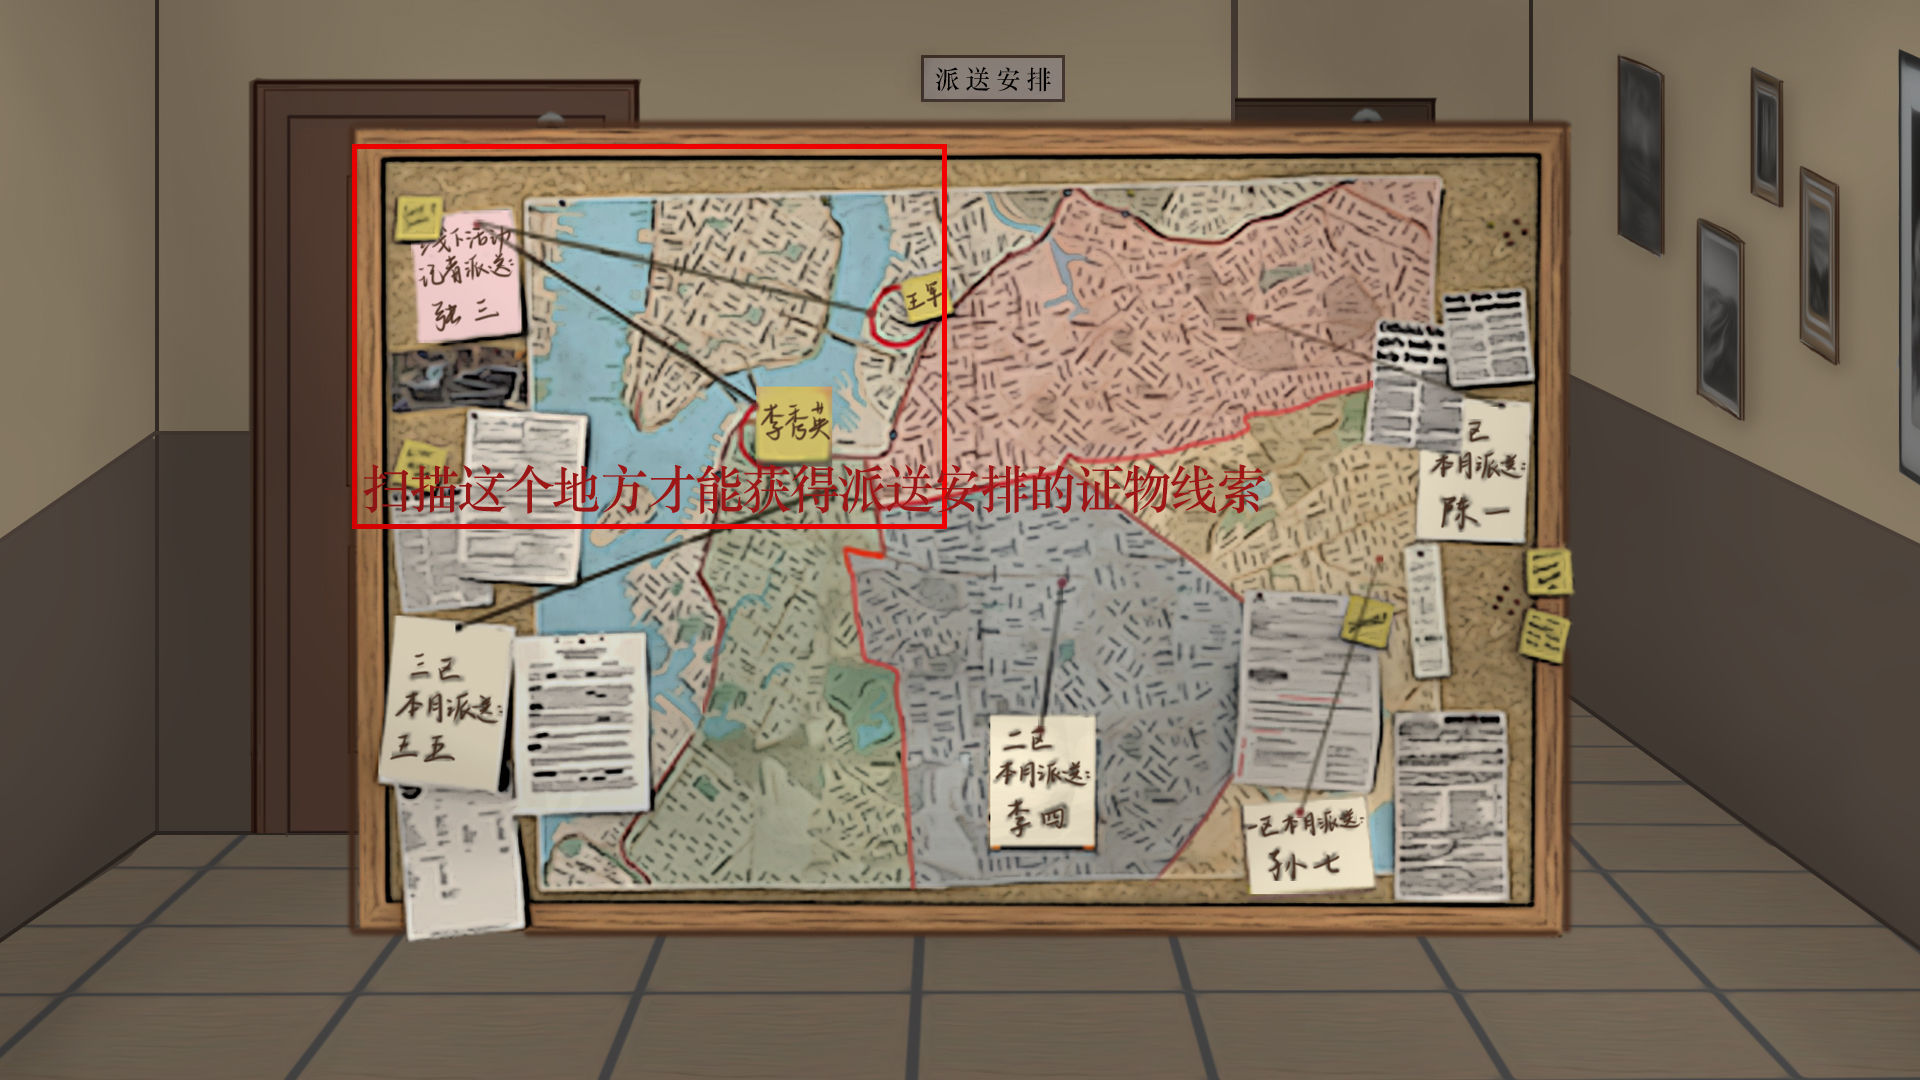 派送安排
线下活动
记者派送:
张三
王军
李秀英
扫描这个地方才能获得派送安排的证物线索
区
本月派送:
陈一
三区
本月派送:
王五
二区
本月派送:
李四
一区本月派送:
孙七